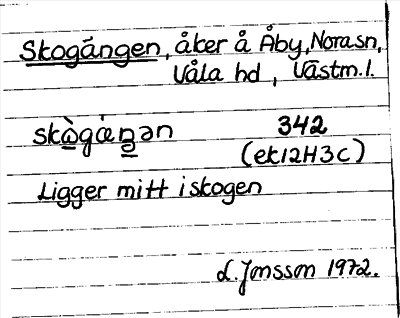 Skogängen, åker å Åby, Nora sn,
Våla hd, Västm. l.
skò̱gàŋ̱ən 342
(ek12H3C)
Ligger mitt i skogen
L. Jonsson 1972.